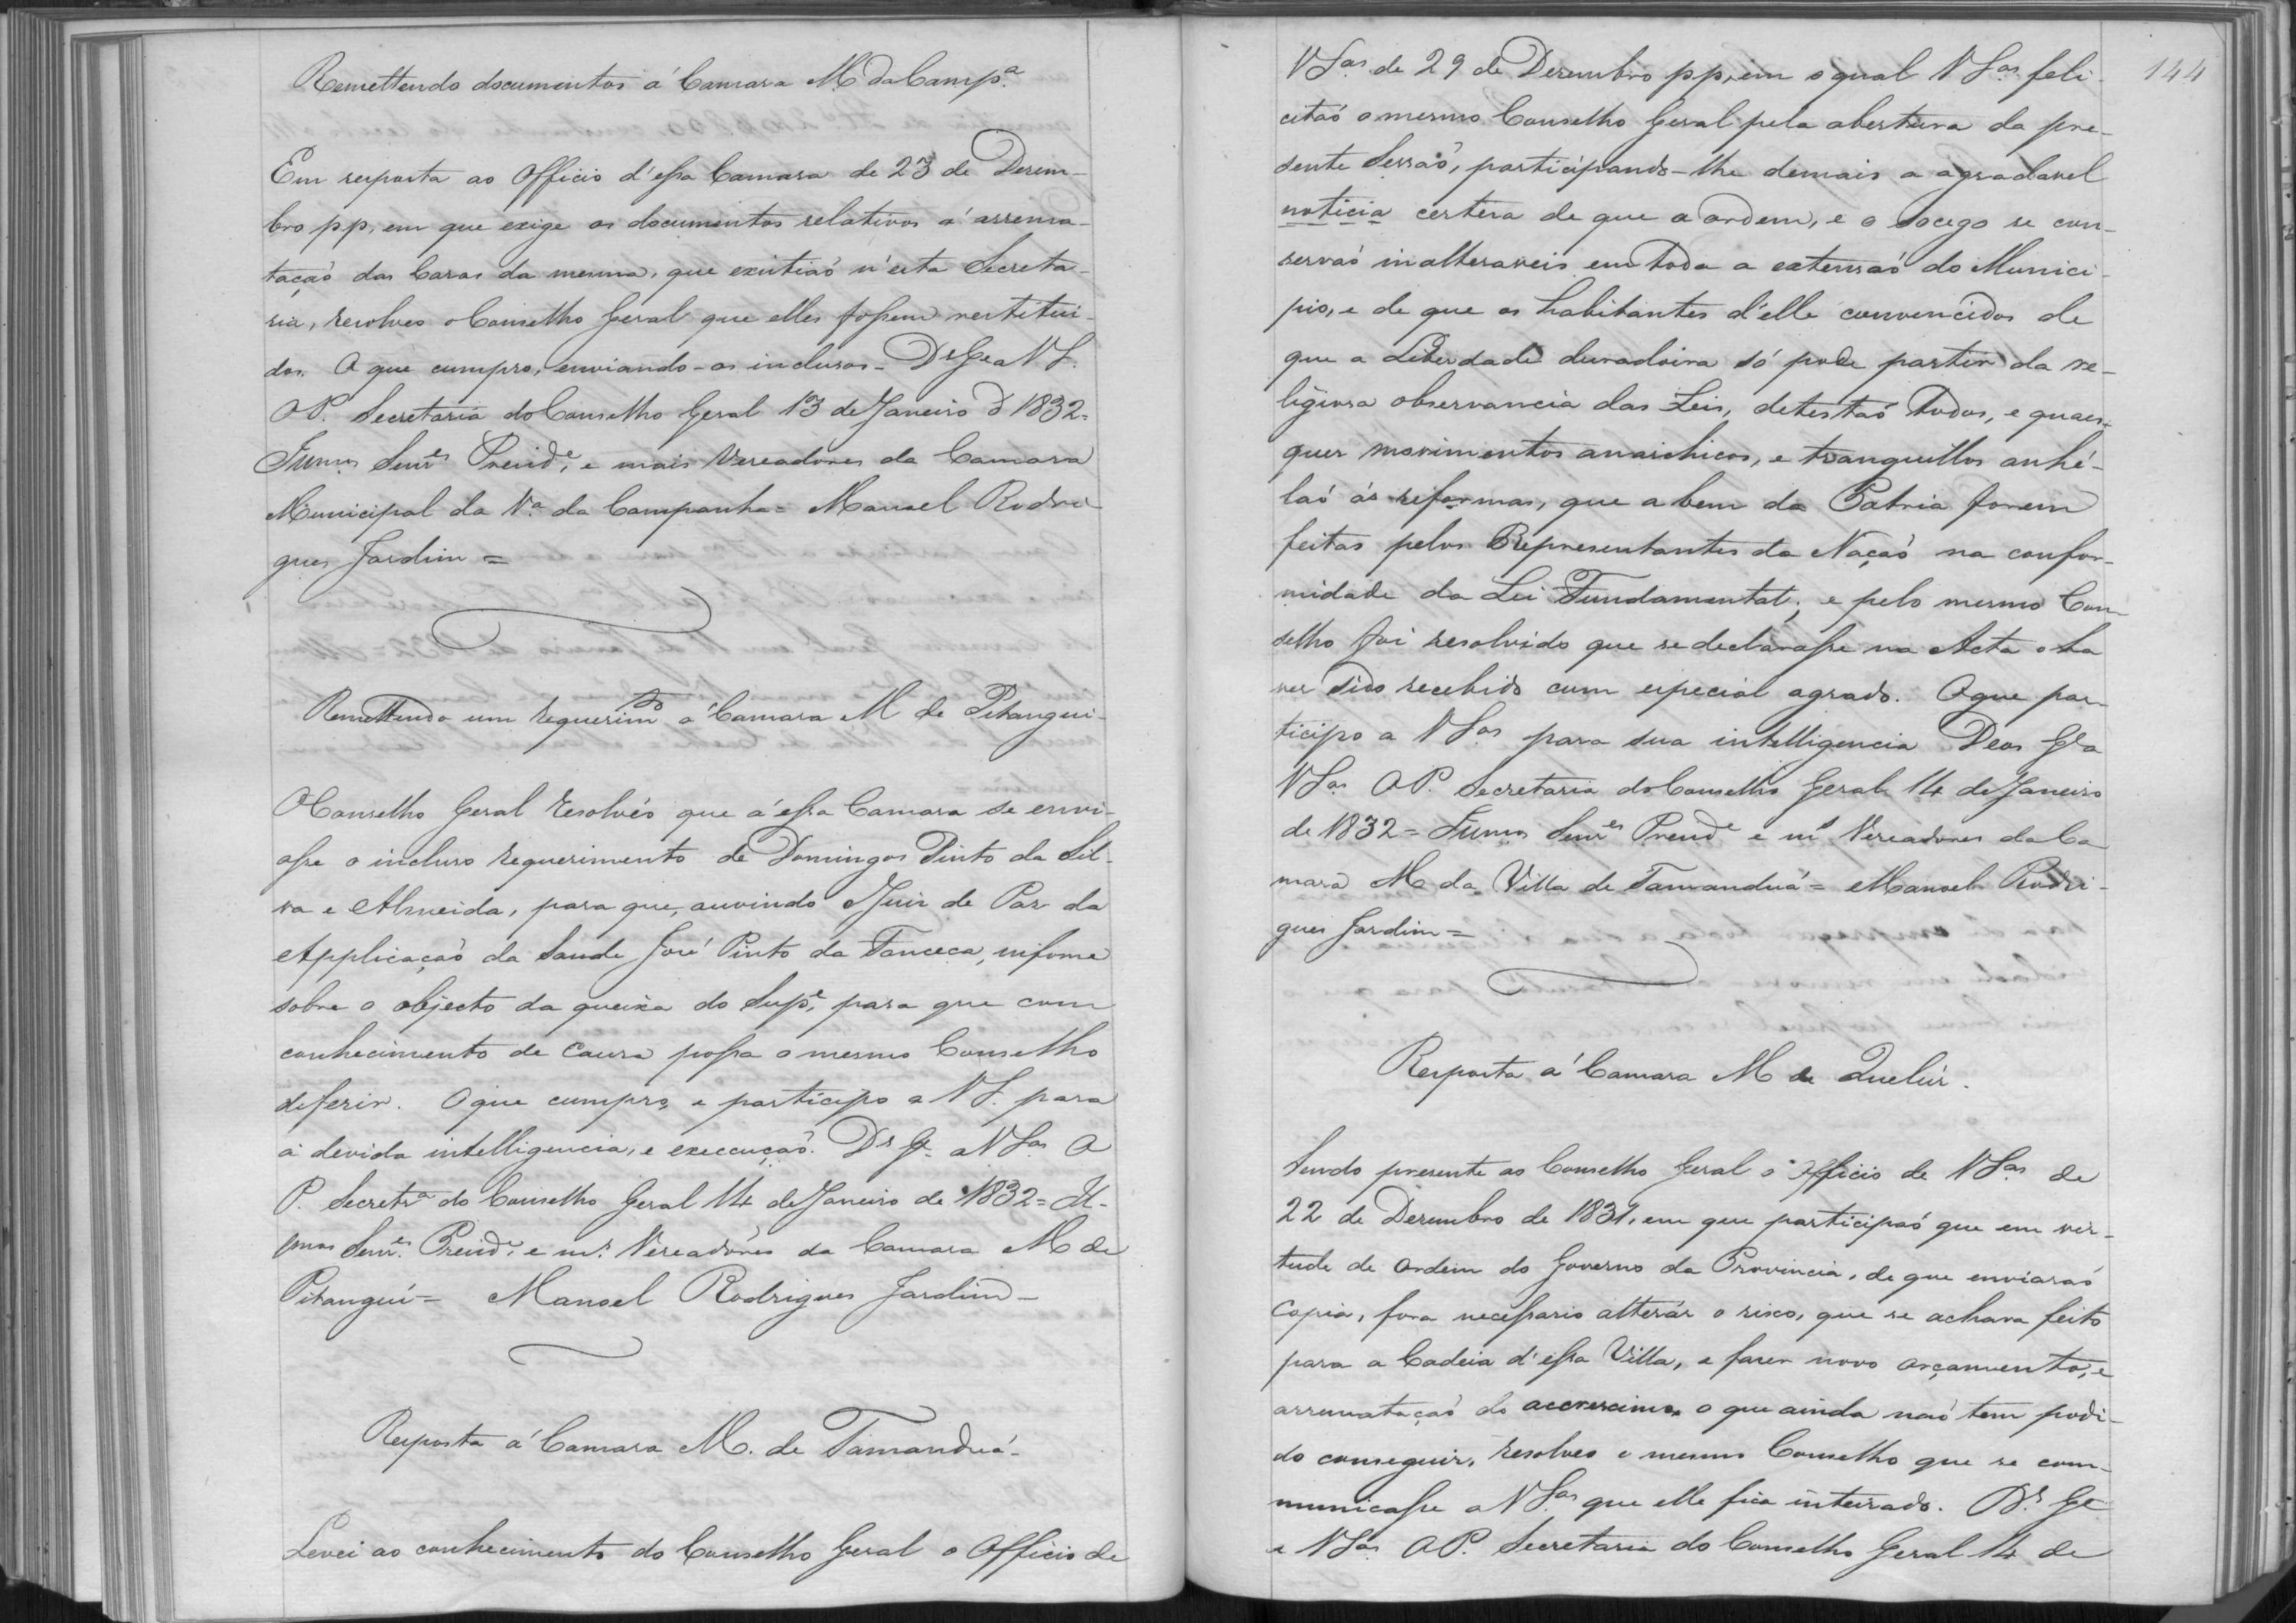 Remettendo documentos á Camara M. da Campª
Em resposta ao Officio d'essa Camara de 23 de Dezem-
bro pp, em que exige os documentos relativos á arrema-
taçaõ das Casas da mesma, que existiaõ n'esta Secreta-
ria, resolveo o Conselho Geral que elles fossem restitui-
dos. O que cumpro, enviando-os inclusos. Ds Ge a V S.
O P. Secretaria do Conselho Geral 13 de Janeiro d 1832=
Illmos Senres Presidе, e mais Vereadores da Camara
Municipal da Vª da Campanha= Manoel Rodri
gues Jardim=
Remettendo um requerimto á Camara M de Pitangui-
O Conselho Geral resolvêo que á essa Camara se envi-
asse o incluso requerimento de Domingos Pinto da Sil-
va e Almeida, para que, ouvindo o Juiz de Paz da
Applicaçaõ da Saude José Pinto da Fonceca, informe
sobre o objecto da queixa do Supe, para que com
conhecimento de causa possa o mesmo Conselho
deferir. O que cumpro, e participo a V S. para
a devida intelligencia, e execcuçaõ. Ds Ge a V Sas O
P. Secretrª do Conselho Geral 14 de Janeiro de 1832= Il-
mos Senres Preside e ms Vereadores da Camara M de
Pitanguí= Manoel Rodrigues Jardim-
Resposta á Camara M. de Tamanduá-
Levei ao conhecimento do Conselho Geral o Officio de
144
V Sas de 29 de Dezembro pp, em o qual V Sas feli-
citaõ o mesmo Conselho Geral pela abertura da pre-
sente Sessaõ, participando-lhe demais a agradavel
noticia certeza de que a ordem, e o socego se con-
servaõ inalteraveis em toda a extensaõ do Munici-
pio, e de que os habitantes d'elle convencidos de
que a Liberdade duradoira só pode partir da re-
ligiosa observancia das Leis, detestaõ todos, e quaes-
quer movimentos anarchicos, e tranquillos anhé-
laõ ás reformas, que a bem da Patria forem
feitas pelos Representantes da Naçaõ na confor-
midade da Lei Fundamental; e pelo mesmo Con-
selho foi resolvido que se declarasse na Acta o ha
ver sido recebido com especial agrado. O que par-
ticipo a V Sas para sua intelligencia Deos Ge a
V Sas O P. Secretaria do Conselho Geral 14 de Janeiro
de 1832= Illmos Senres Preside e ms Vereadores da Ca
mara M da Villa de Tamanduá= Manoel Rodri-
gues Jardim=
Resposta á Camara M de Queluz.
Sendo presente ao Conselho Geral o Officio de V Sas de
22 de Dezembro de 1831, em que participaõ que em vir-
tude de ordem do Governo da Provincia, de que enviaraõ
copia, fora necessario alterár o risco, que se achava feito
para a Cadeia d'essa Villa, e fazer novo orçamento, e
arrematação do accrescimo, o que ainda naõ tem podi-
do conseguir, resolveo o mesmo Conselho que se com-
municasse a V Sas que elle fica inteirado. Ds Ge
a V Sas O P. Secretaria do Conselho Geral 14 de